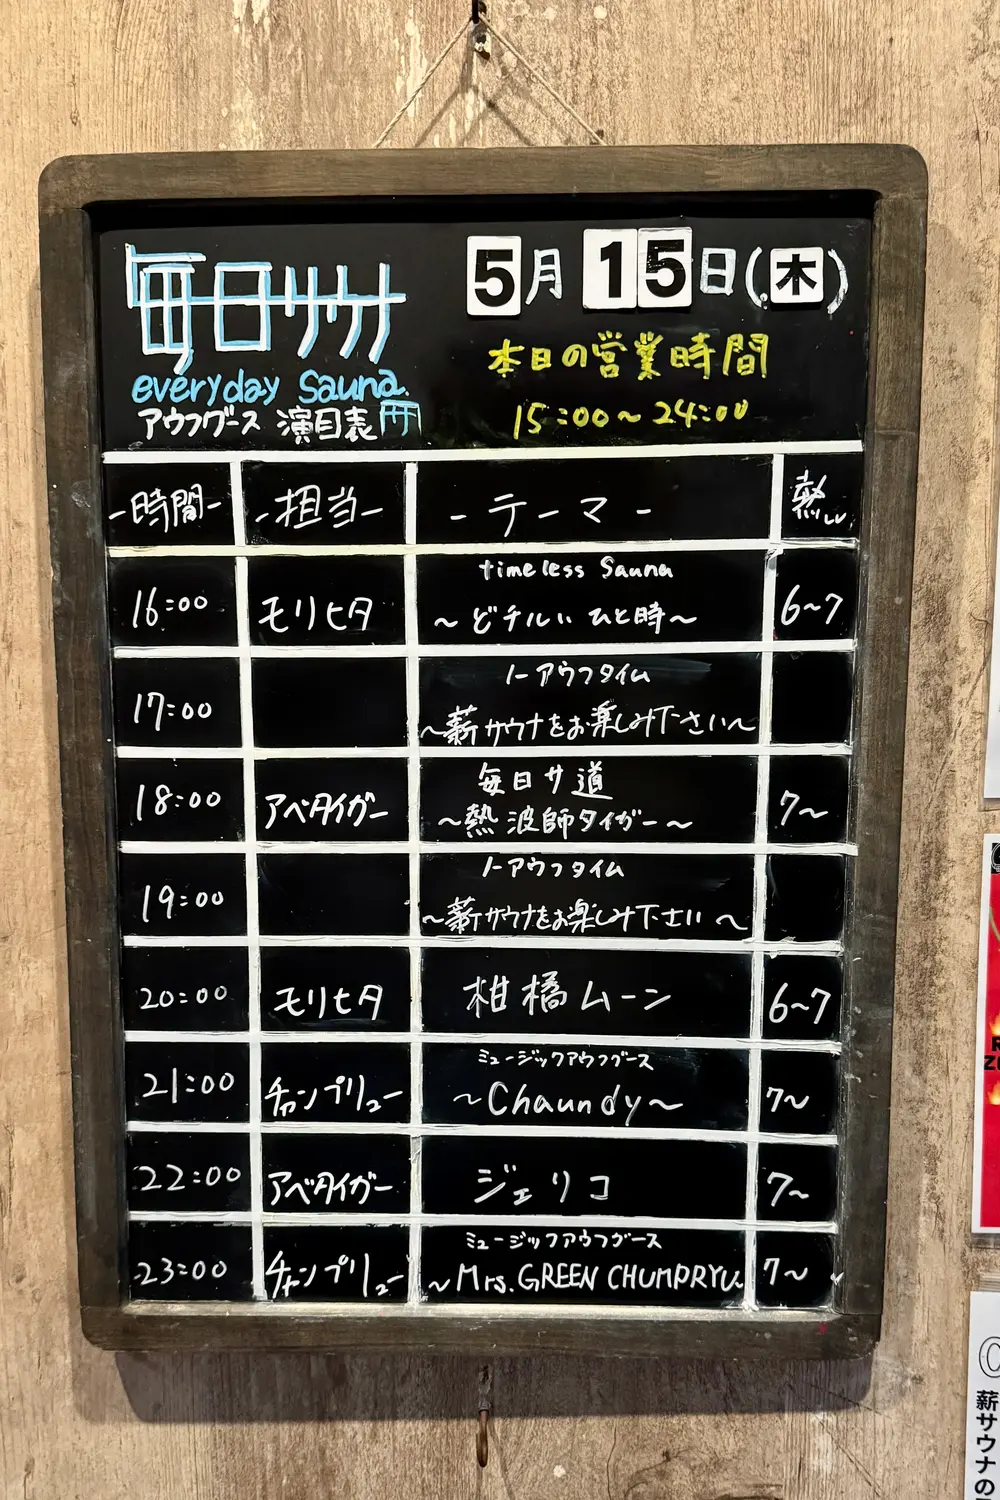 毎日サウナ
everyday Sauna.
アウフグース 演目表
5月 15日(木)
本日の営業時間
15:00〜24:00
-時間- -担当- -テーマ- 熱い
16:00 モリヒタ timeless Sauna 6~7
〜どチルい ひと時〜
17:00 ノーアウフタイム
〜薪サウナをお楽しみ下さい〜
18:00 アベタイガー 毎日サ道 7〜
〜熱波師タイガー〜
19:00 ノーアウフタイム
〜薪サウナをお楽しみ下さい〜
20:00 モリヒタ 柑橘ムーン 6~7
21:00 チャンプリュー ミュージックアウフグース 7〜
〜Chaundy〜
22:00 アベタイガー ジェリコ 7〜
23:00 チャンプリュー ミュージックアウフグース 7〜
〜Mrs.GREEN CHUMPRYU〜
薪サウナの